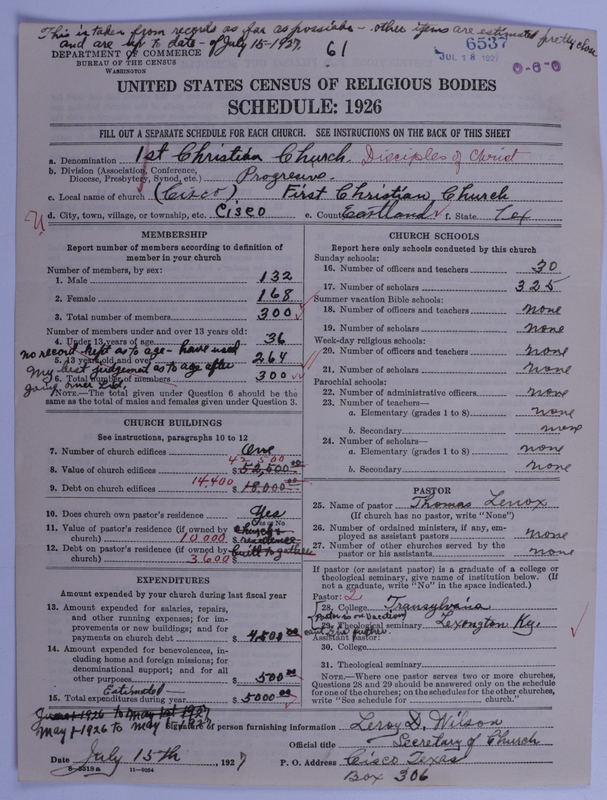 This is taken from records as far as possible - other items are estimated pretty close
and are up to date - of July 15-1927.
61
6537
JUL 18 1927
0-6-0
DEPARTMENT OF COMMERCE
BUREAU OF THE CENSUS
WASHINGTON
UNITED STATES CENSUS OF RELIGIOUS BODIES
SCHEDULE: 1926
FILL OUT A SEPARATE SCHEDULE FOR EACH CHURCH. SEE INSTRUCTIONS ON THE BACK OF THIS SHEET
a. Denomination 1st Christian Church. Disciples of Christ
b. Division (Association, Conference,
Diocese, Presbytery, Synod, etc.) Progresive.
c. Local name of church (Cisco) First Christian Church
d. City, town, village, or township, etc. Cisco e. County Eastland f. State Tex
MEMBERSHIP
Report number of members according to definition of
member in your church
Number of members, by sex:
1. Male 132
2. Female 168
3. Total number of members 300
Number of members under and over 13 years old:
4. Under 13 years of age 36
no record kept as to age - have used
5. 13 years old and over 264
my best judgement as to age after
6. Total number of members 300
going over list.
NOTE.—The total given under Question 6 should be the
same as the total of males and females given under Question 3.
CHURCH BUILDINGS
See instructions, paragraphs 10 to 12
7. Number of church edifices One
42 500
8. Value of church edifices $ 52,500.00
14,400
9. Debt on church edifices $ 18,000.00
10. Does church own pastor's residence? Yes
Yes or No
11. Value of pastor's residence (if owned by church & residence
church) 10,000 $
12. Debt on pastor's residence (if owned by built together
church) 3,600 $
EXPENDITURES
Amount expended by your church during last fiscal year
13. Amount expended for salaries, repairs,
and other running expenses; for im-
provements or new buildings; and for
payments on church debt $ 4,500.00
14. Amount expended for benevolences,
including home and foreign missions; for
denominational support; and for all
other purposes $ 500.00
Estimated—
15. Total expenditures during year $ 5000.00
May 1-1926 to May 1927
CHURCH SCHOOLS
Report here only schools conducted by this church
Sunday schools:
16. Number of officers and teachers 30
17. Number of scholars 325
Summer vacation Bible schools:
18. Number of officers and teachers none
19. Number of scholars none
Week-day religious schools:
20. Number of officers and teachers none
21. Number of scholars none
Parochial schools:
22. Number of administrative officers none
23. Number of teachers—
a. Elementary (grades 1 to 8) none
b. Secondary none
24. Number of scholars—
a. Elementary (grades 1 to 8) none
b. Secondary none
PASTOR
25. Name of pastor Thomas Lenox
(If church has no pastor, write "None")
26. Number of ordained ministers, if any, em-
ployed as assistant pastors none
27. Number of other churches served by the
pastor or his assistants none
If pastor (or assistant pastor) is a graduate of a college or
theological seminary, give name of institution below. (If
not a graduate, write "No" in the space indicated.)
Pastor: 2
28. College Transylvania
Pastor is on vacation
29. Theological seminary Lexongton Ky.
Assistant pastor:
30. College
31. Theological seminary
NOTE.—Where one pastor serves two or more churches,
Questions 28 and 29 should be answered only on the schedule
for one of the churches; on the schedules for the other churches,
write "See schedule for church."
Signature of person furnishing information Leroy D. Wilson
Official title Secretary of Church
Date July 15th, 1927 P. O. Address Cisco Texas
Box 306
8-5318a 11-9064